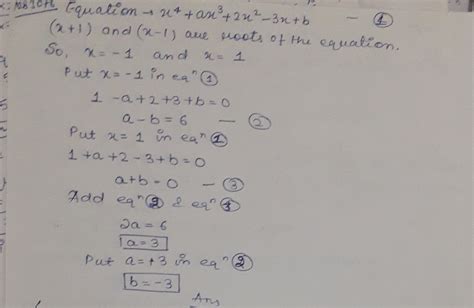 Equation → x⁴ + ax³ + 2x² - 3x + b — ①
(x+1) and (x-1) are roots of the equation.
So, x = -1 and x = 1
Put x = -1 in eqⁿ ①
1 - a + 2 + 3 + b = 0
a - b = 6 — ②
Put x = 1 in eqⁿ ①
1 + a + 2 - 3 + b = 0
a + b = 0 — ③
Add eqⁿ ② & eqⁿ ③
2a = 6
a = 3
Put a = +3 in eqⁿ ②
b = -3
Ans